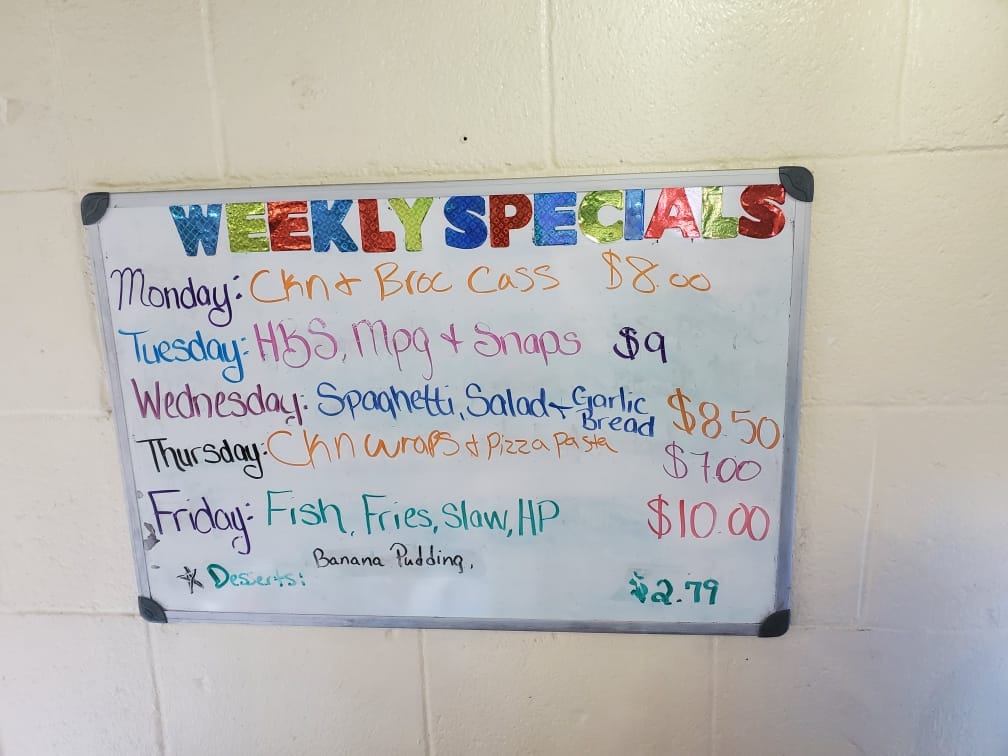 WEEKLY SPECIALS
Monday: Ckn + Broc Cass $8.00
Tuesday: HBS, Mpg + Snaps $9
Wednesday: Spaghetti, Salad + Garlic Bread $8.50
Thursday: Ckn wraps + Pizza Pasta $7.00
Friday: Fish, Fries, Slaw, HP $10.00
Banana Pudding,
* Desserts: $2.79